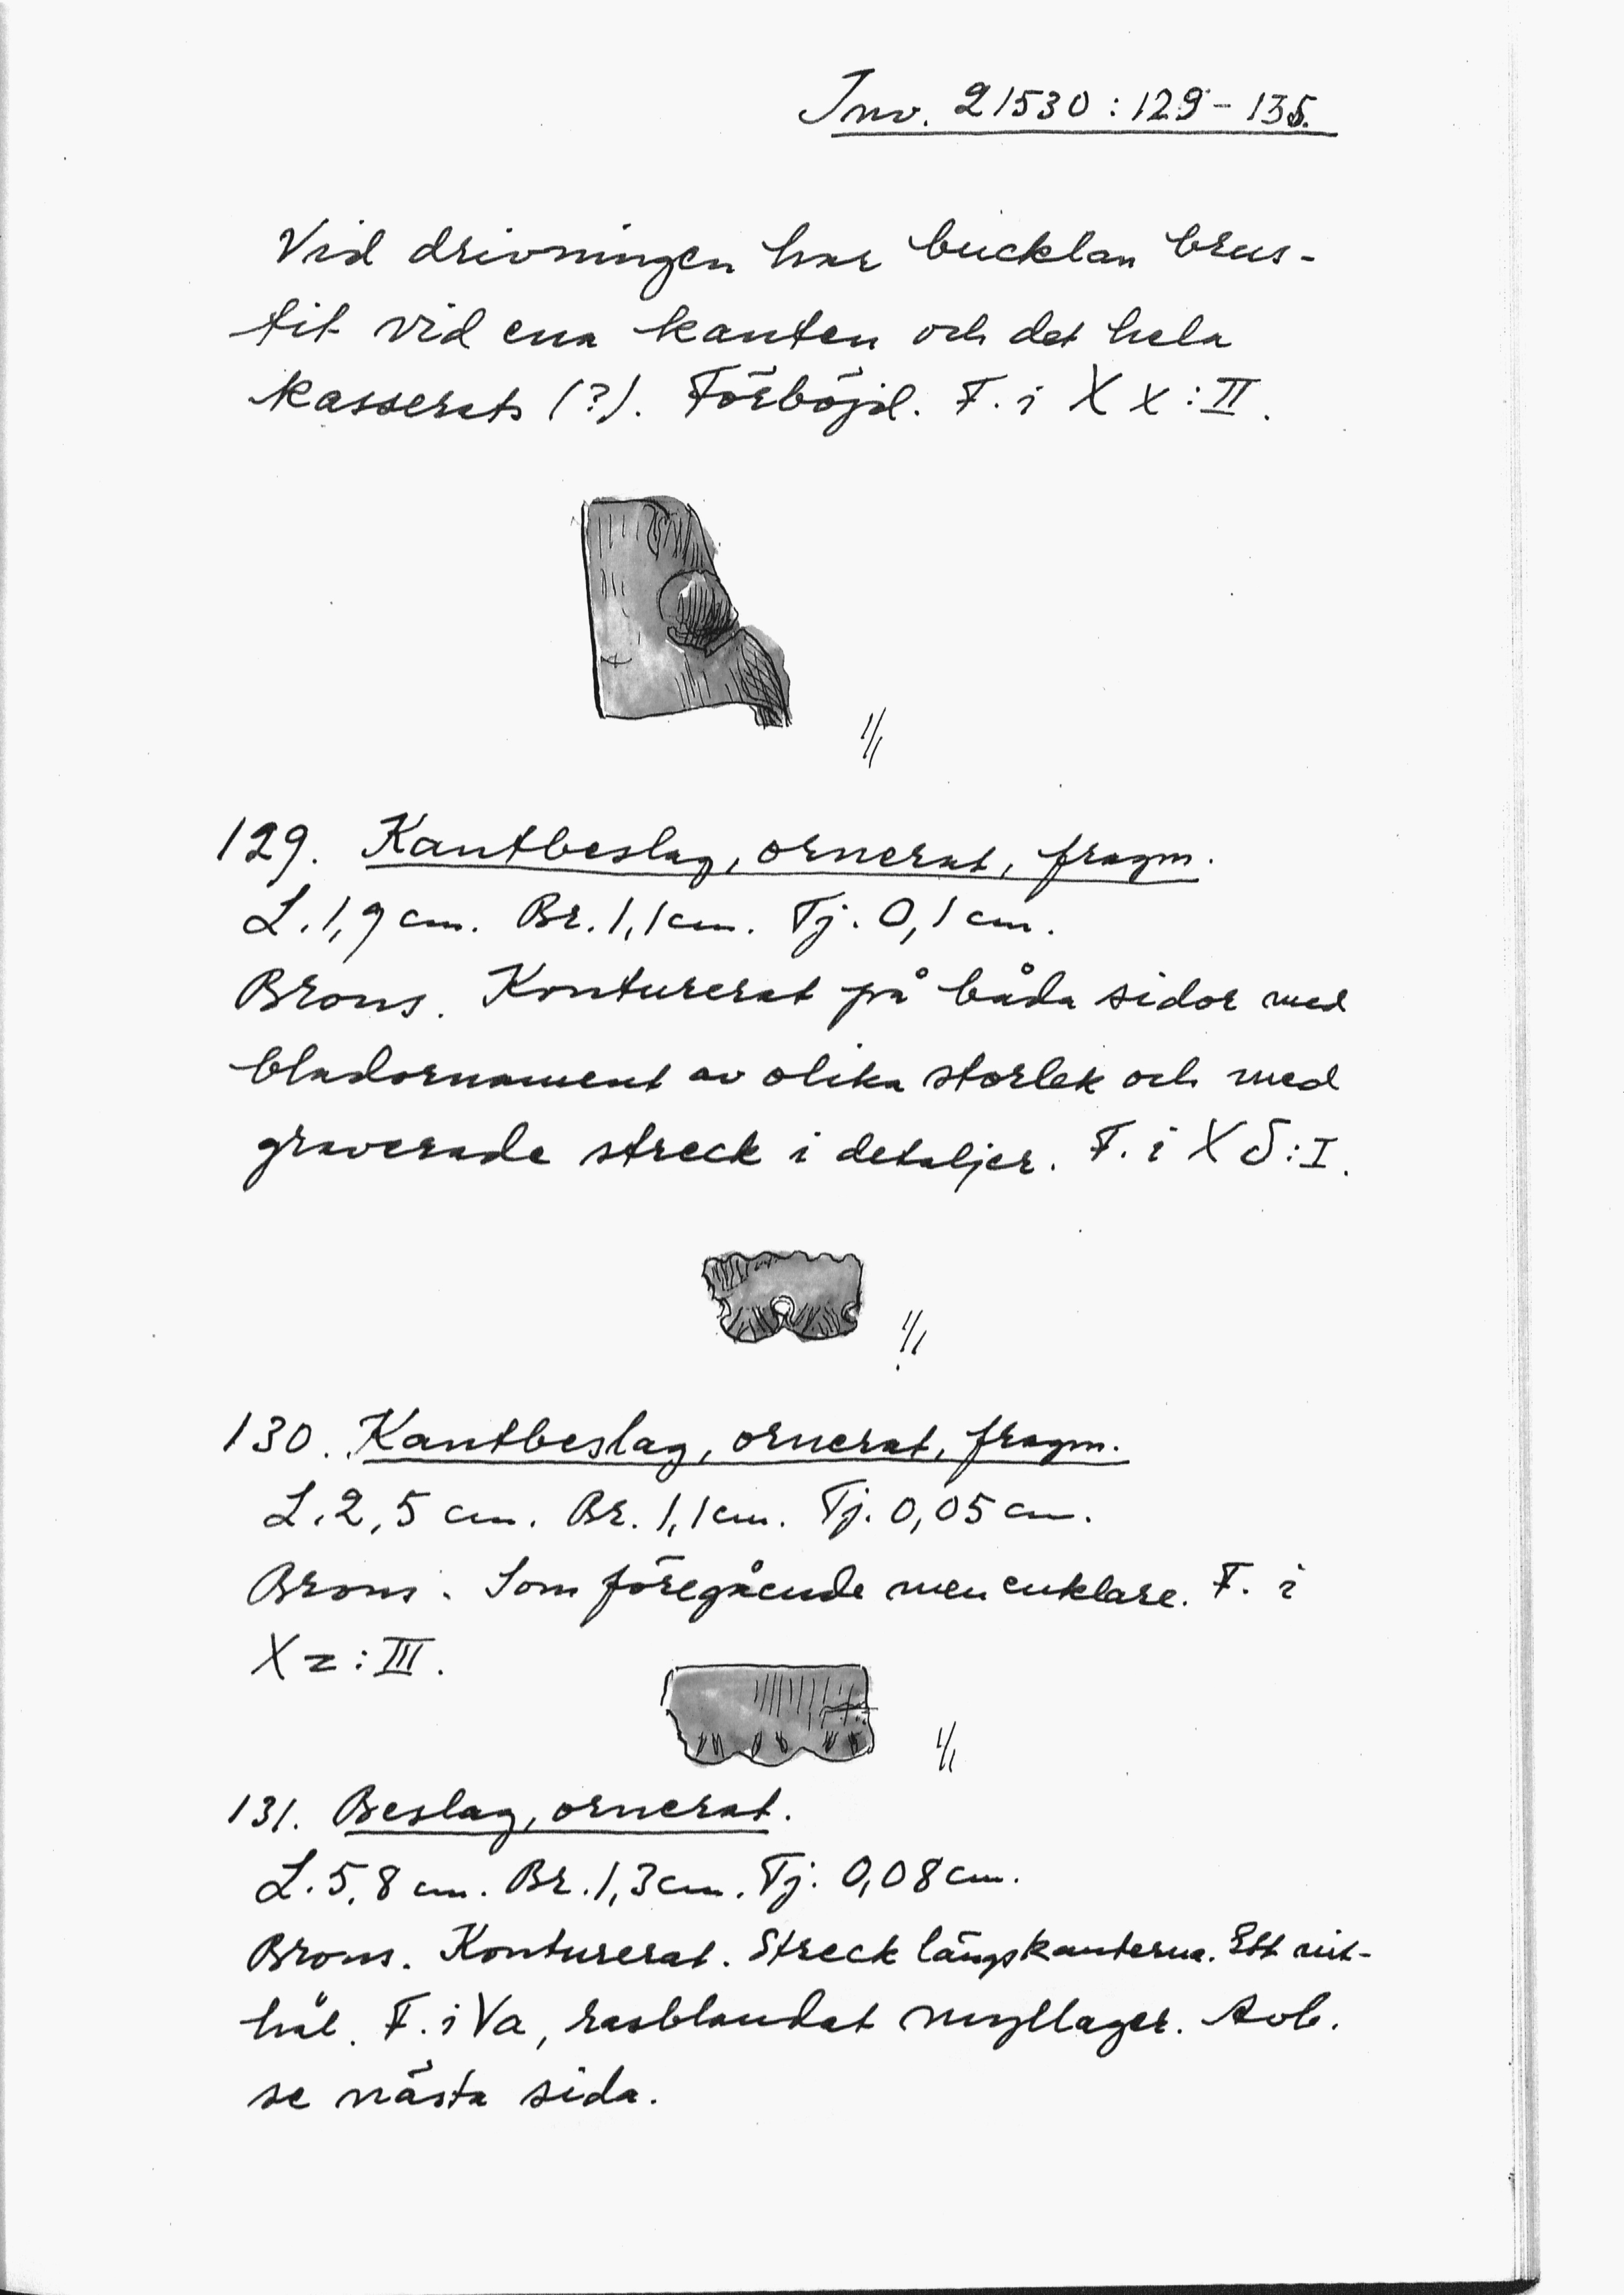 Inv. 21530:129-135.
Vid drivningen har bucklan brus-
tit vid ena kanten och det hela
kasserats (?). Förböjd. F. i X x:II.
1/1
129. Kantbeslag, ornerat, fragm.
L. 1,9 cm. Br. 1,1 cm. Tj. 0,1 cm.
Brons. Konturerat på båda sidor med
bladornament av olika storlek och med
graverade streck i detaljer. F. i X S:I.
1/1
130. Kantbeslag, ornerat, fragm.
L. 2,5 cm. Br. 1,1 cm. Tj. 0,05 cm.
Brons. Som föregående men enklare. F. i
X z:III.
1/1
131. Beslag, ornerat.
L. 5,8 cm. Br. 1,3 cm. Tj. 0,08 cm.
Brons. Konturerat. Streck längs kanterna. Ett nit-
hål. F. i Va, rasblandat myllager. Avb.
se nästa sida.